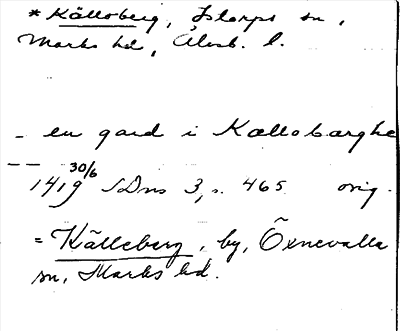 * Källoberg, Istorps sn,
Marks hd, Älvsb. l.
– en gard i Kællobærghe
– –
1419 30/6 SDns 3, s. 465 orig.
= Källeberg, by, Öxnevalla
sn, Marks hd.